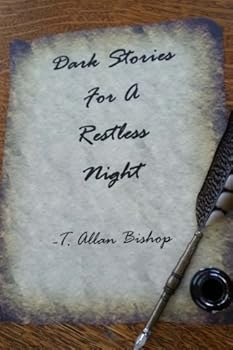 Dark Stories
For A
Restless
Night
-T. Allan Bishop